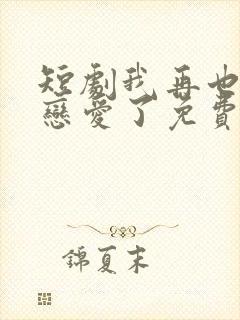 短劇我再也
戀愛了免費
錦夏末